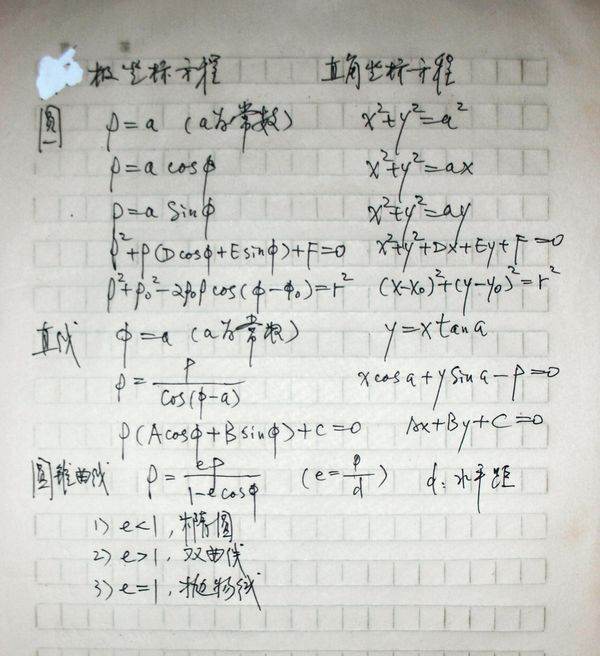 极坐标方程 直角坐标方程
圆 ρ=a (a为常数) x²+y²=a²
ρ=a cosφ x²+y²=ax
ρ=a Sinφ x²+y²=ay
ρ²+ρ(Dcosφ+Esinφ)+F=0 x²+y²+Dx+Ey+F=0
ρ²+ρ₀²-2ρ₀ρcos(φ-φ₀)=r² (x-x₀)²+(y-y₀)²=r²
直线 φ=a (a为常数) y=xtana
ρ=p/cos(φ-a) xcosa+ysina-p=0
ρ(Acosφ+Bsinφ)+C=0 Ax+By+C=0
圆锥曲线 ρ=ep/1-ecosφ (e=ρ/d) d:水平距
1) e<1,椭圆
2) e>1,双曲线
3) e=1,抛物线